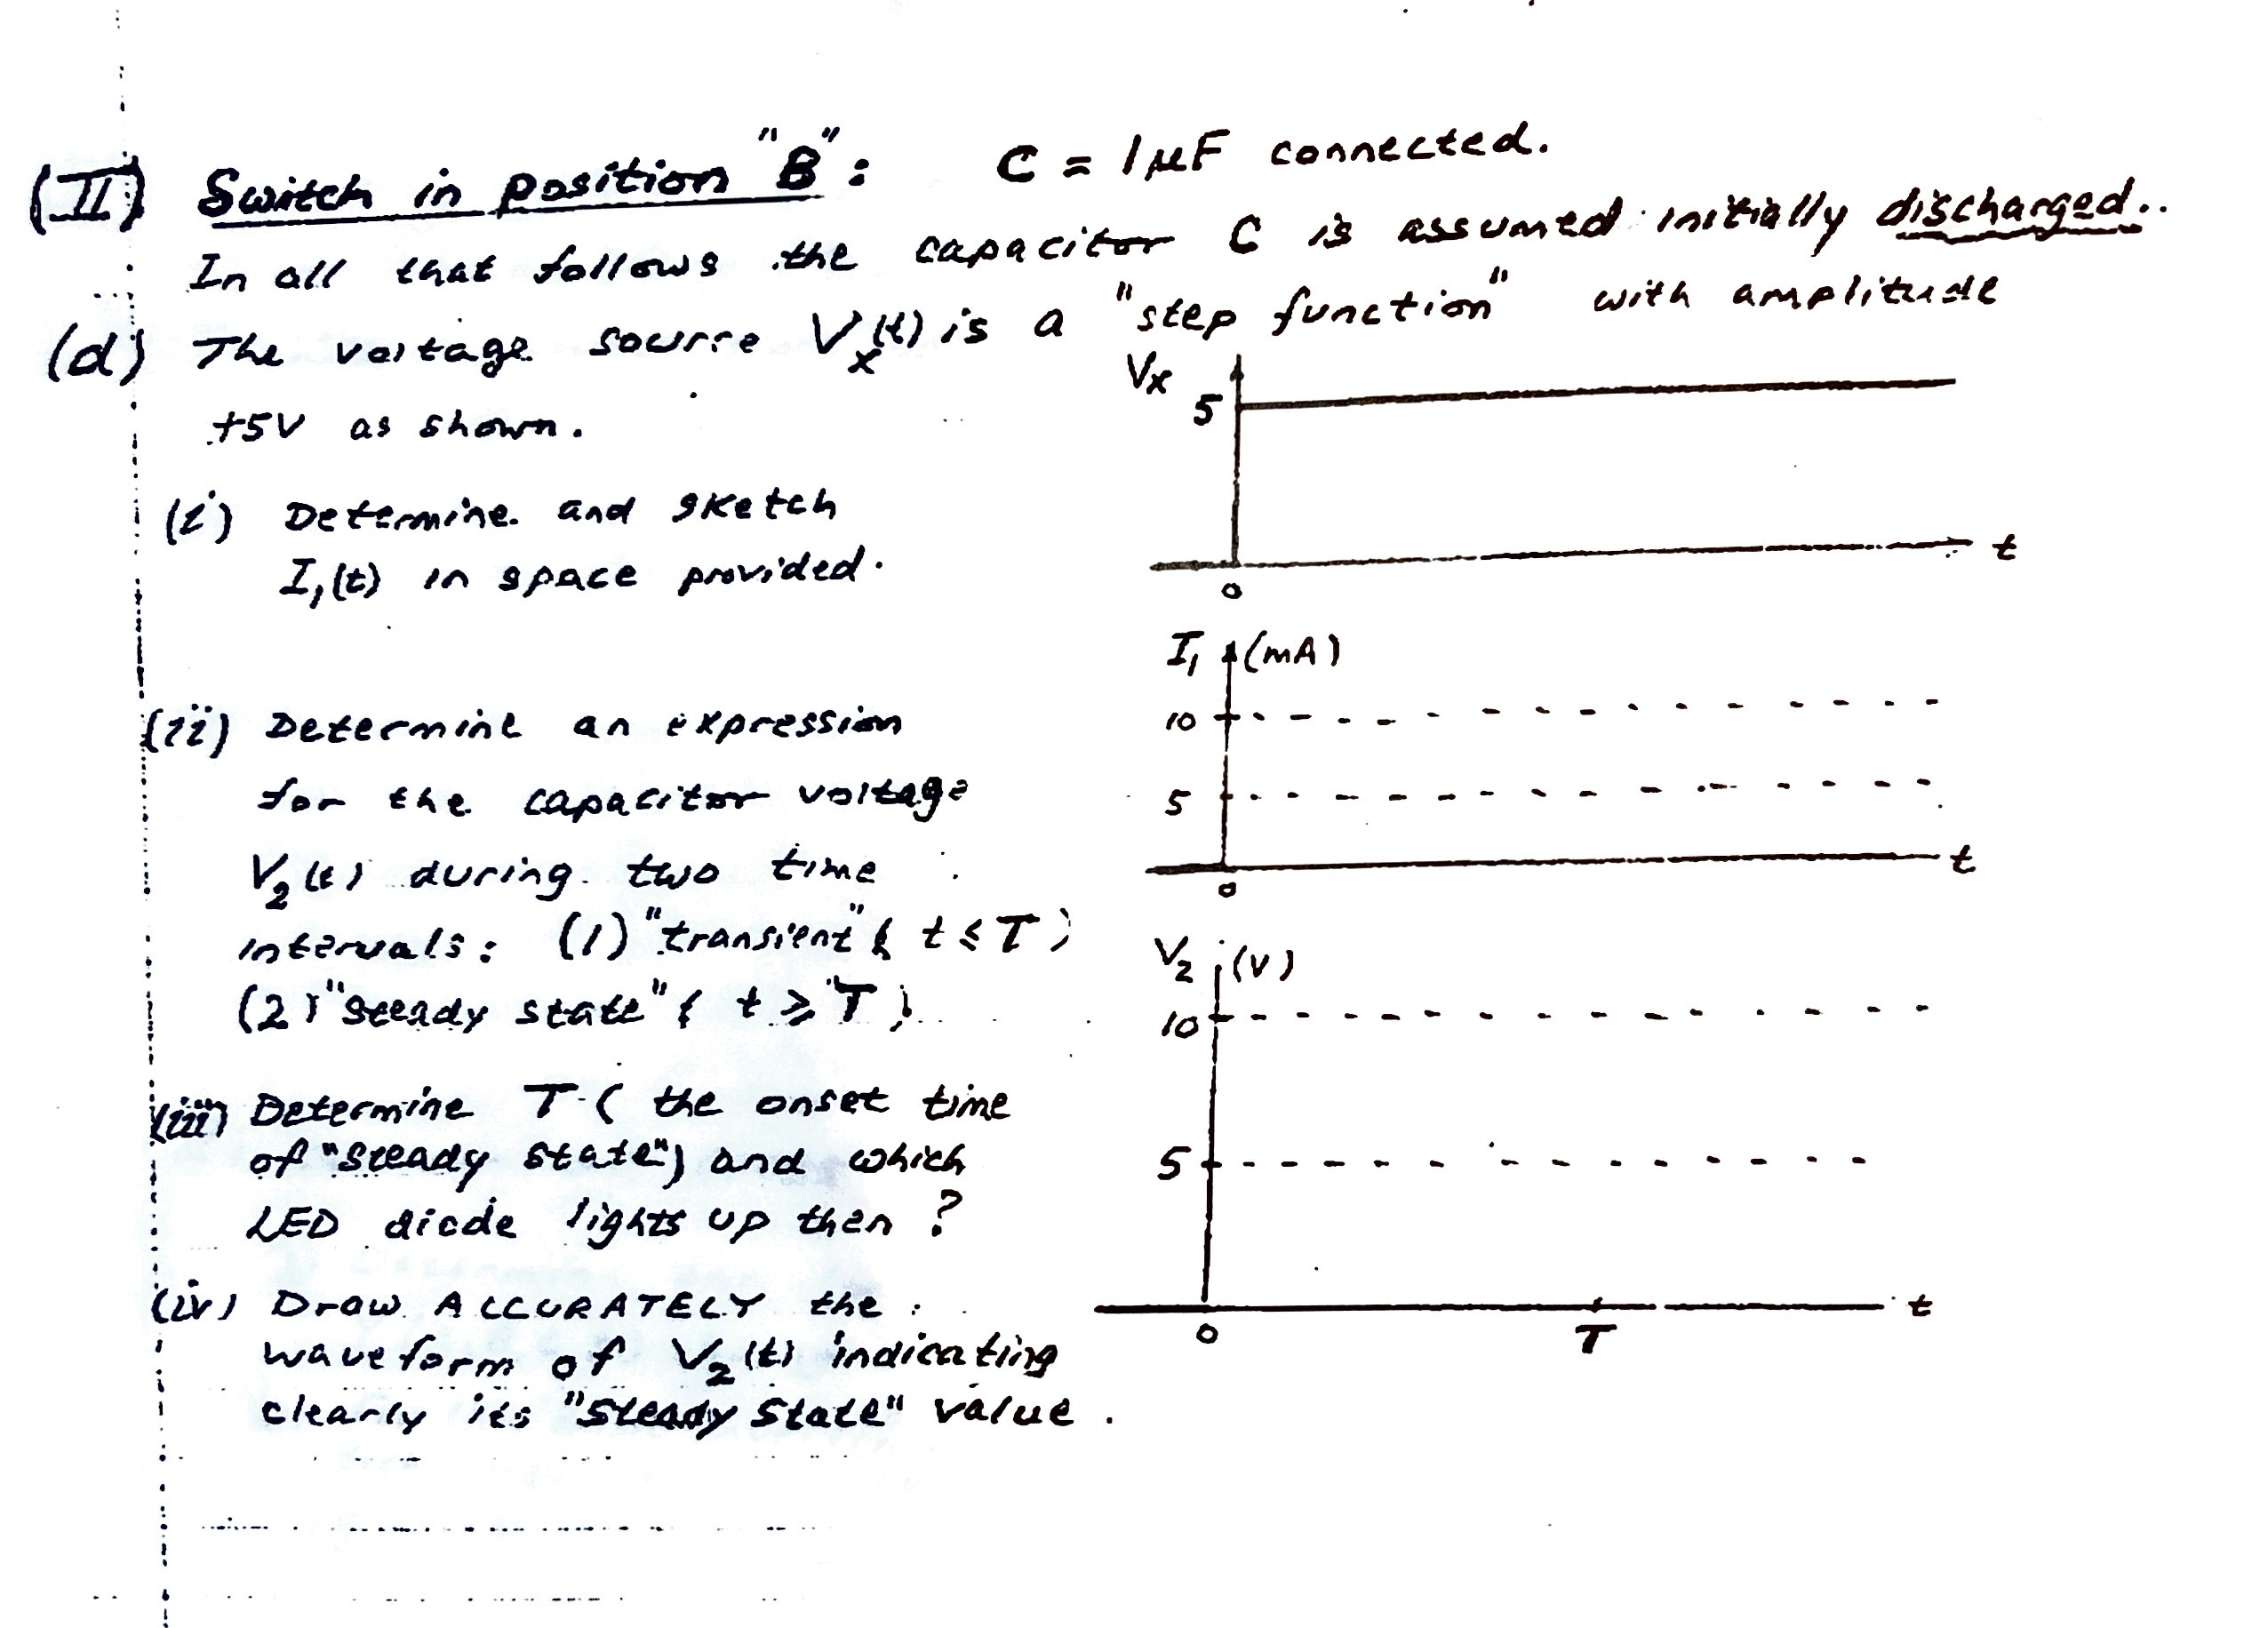 (II) Switch in position "B": C = 1μF connected.
In all that follows the capacitor C is assumed initially discharged..
(d) The voltage source Vx(t) is a "step function" with amplitude
+5V as shown.
Vx
5
t
0
(i) Determine and sketch
I1(t) in space provided.
I1 (mA)
10
5
t
0
(ii) Determine an expression
for the capacitor voltage
V2(t) during two time
intervals: (1) "transient" ( t ≤ T )
(2) "steady state" ( t ≥ T )
V2 (V)
10
5
t
0
T
(iii) Determine T ( the onset time
of "steady state") and which
LED diode lights up then ?
(iv) Draw ACCURATELY the
waveform of V2(t) indicating
clearly its "steady state" value.